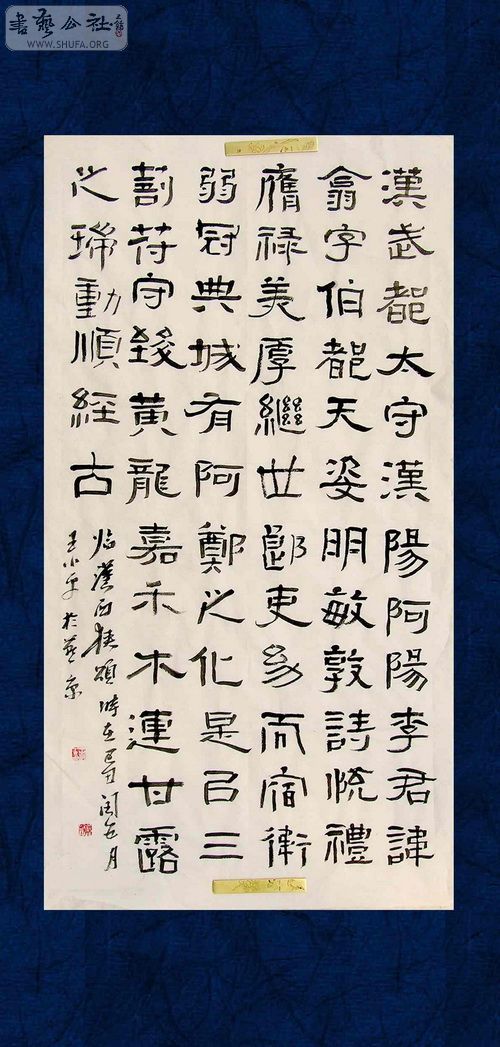 書藝公社
WWW.SHUFA.ORG
漢武都太守漢陽阿陽李君諱
翕字伯都天姿明敏敦詩悅禮
膺祿美厚繼世郎吏幼而宿衛
弱冠典城有阿鄭之化是以三
剖符守致黃龍嘉禾木連甘露
之瑞動順經古
臨漢西狹頌時在己丑閏五月
王小平於燕京